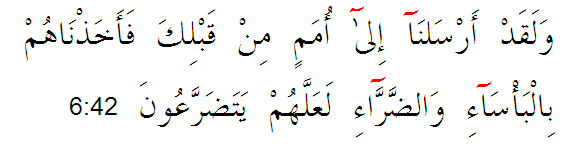 وَلَقَدْ أَرْسَلنَآ إِلىٰٓ أُمَمٍ مِنْ قَبْلِكَ فَأَخَذْنَاهُمْ
بِالْبَأْسَآءِ وَالضَّرَّآءِ لَعَلَّهُمْ يَتَضَرَّعُونَ 6:42